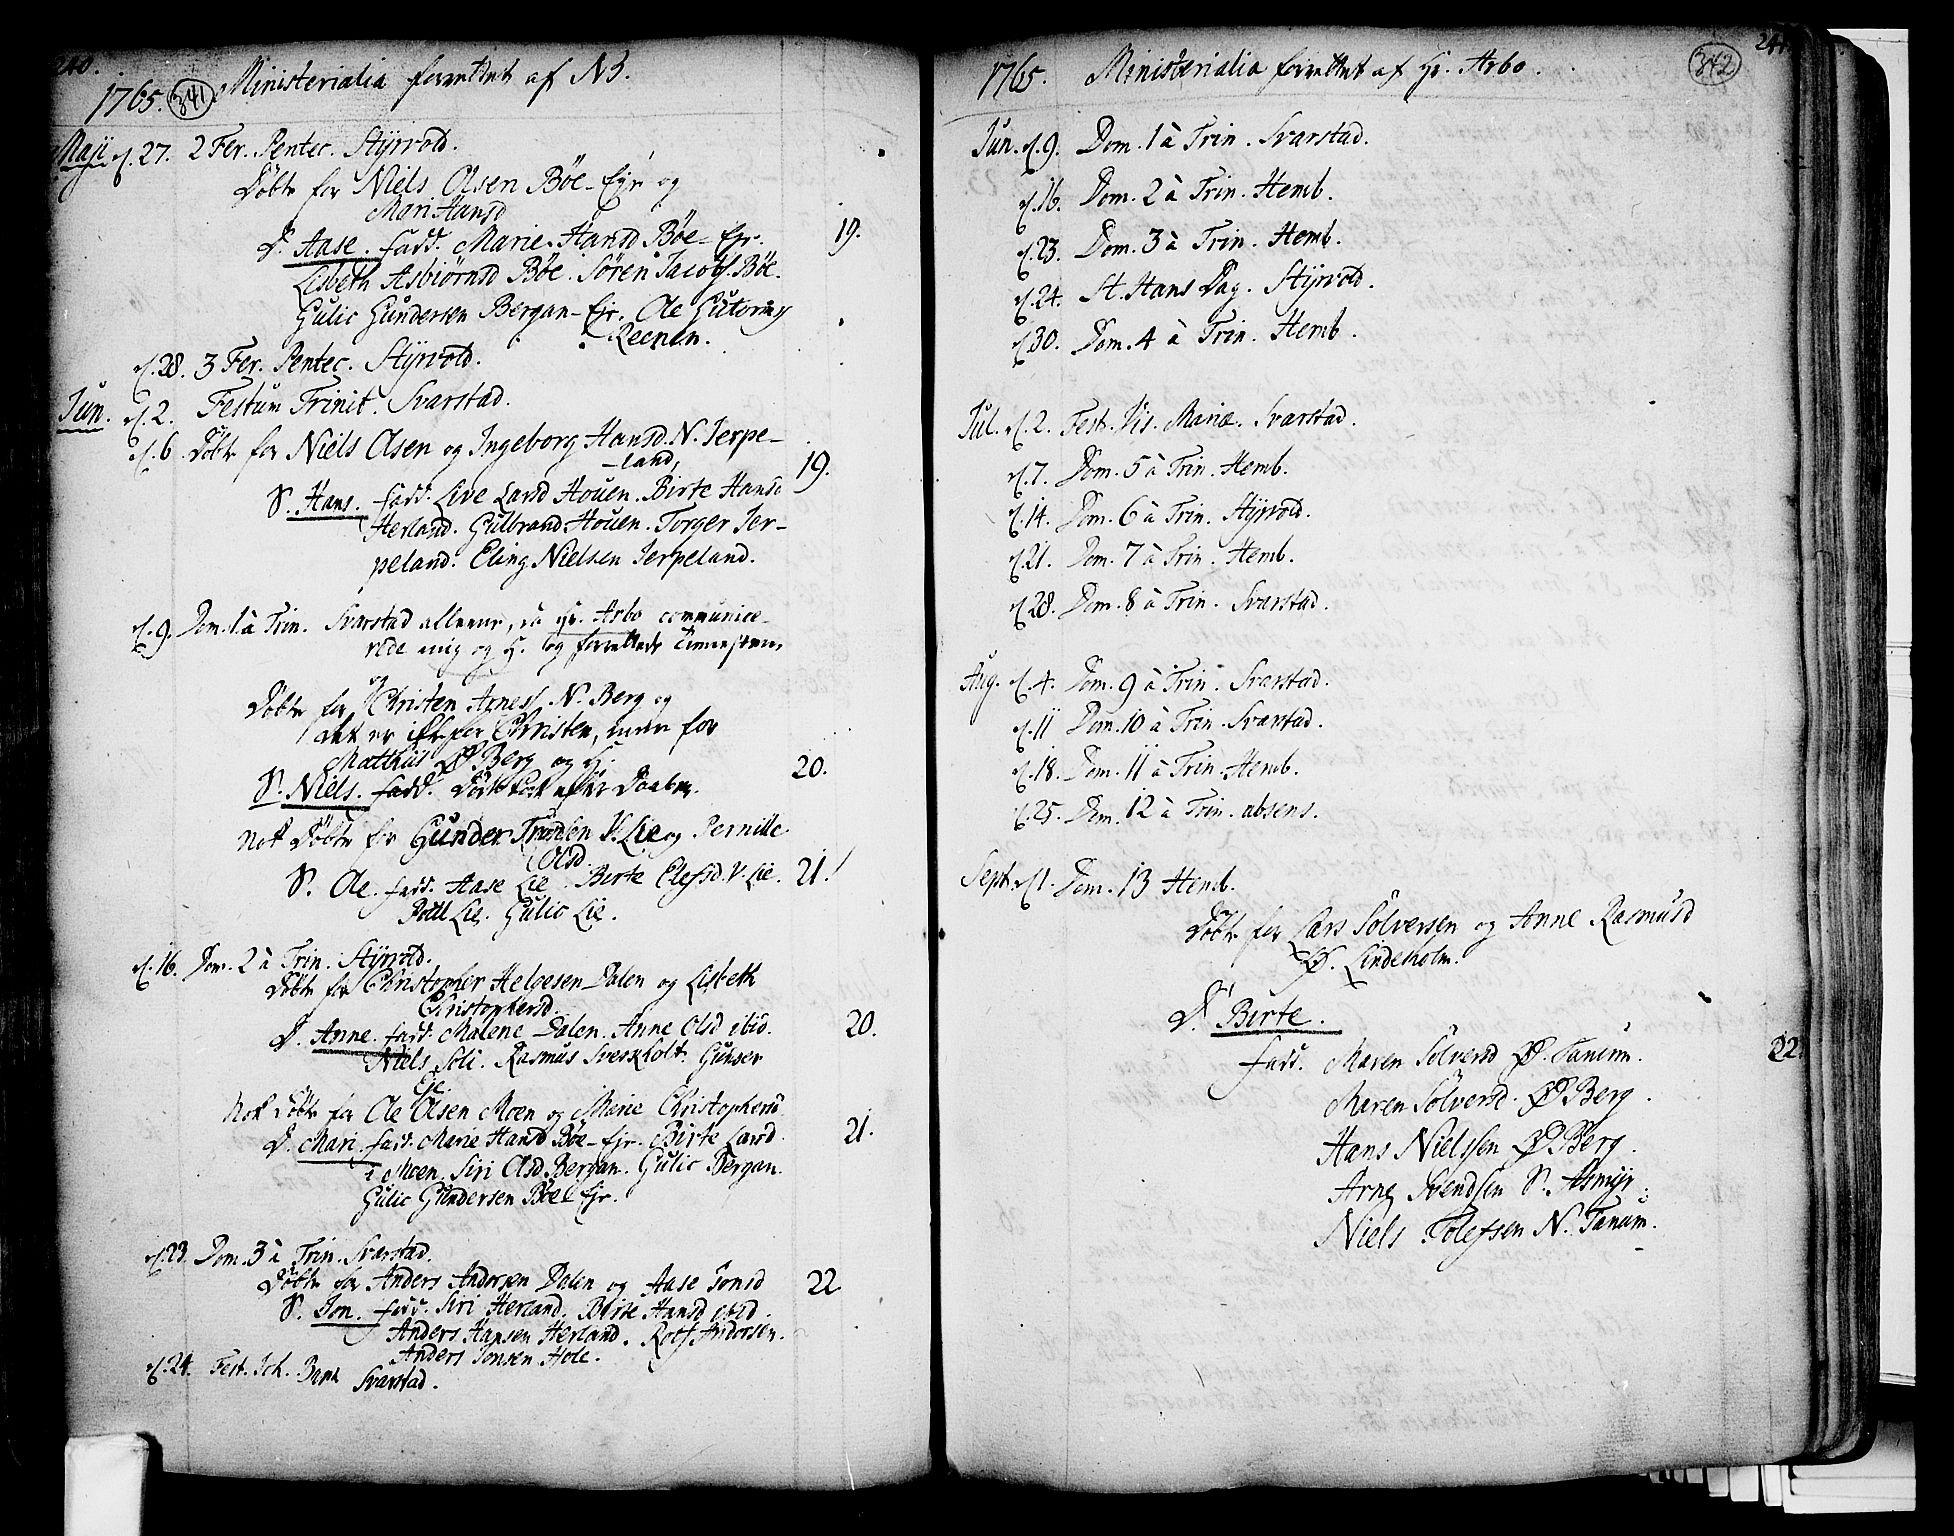 240.
1765. 341. Ministerialia forrettet af NB.
Maji d. 27. 2 Fer. Pentec. Styrvold.
Döbte for Niels Olsen Böe-Eje og
Mari Hansd
D. Aase. fadd. Marie Hansd Böe-Eje.
Lisbeth Asbiörnsd Böe. Sören Jacobs. Böe.
Gulic Gundersen Bergan-Eje. Ole Gutorms
Reenen.
19.
d. 28. 3 Fer. Pentec. Styrvold.
Jun. d. 2. Festum Trinit. Svarstad.
d. 6. Döbte for Niels Olsen og Ingeborg Hansd. N. Jerpe-
land,
19.
S. Hans. fadd. Live Larsd Houen. Birte Hansd
Herland. Gulbrand Houen. Torger Jer-
peland. Eling Nielsen Jerpeland.
d. 9. Dom. 1 à Trin. Svarstad allene, da Hr. Arbo communice-
rede mig og H. og forrettede Tienesten,
Döbte for Christen Arnes. N. Berg og
det er ikke for Christen, men for
Matthis Ø Berg og H.
S. Niels. fadd. Döde strax efter Daaben.
20.
Nok Döbte for Gunder Trondsen V. Lie og Pernille
Olsd.
S. Ole. fadd. Aase Lie. Birte Elefsd. V. Lie.
Poul Lie. Gulic Lie.
21.
d. 16. Dom. 2 à Trin. Styrvold.
Döbte for Christopher Helgesen Dalen og Lisbeth
Christophersd.
D. Anne. fadd. Malene Dalen. Anne Olsd ibid.
Niels Soli. Rasmus Sverkholt. Gunder
Eje.
20.
Nok Döbte for Ole Olsen Moen og Marie Christophersd
D. Mari. fadd. Marie Hansd Böe-Eje. Birte Larsd.
Moen. Siri Olsd Bergan. Gulic Bergan.
Gulic Gundersen Böe Eje.
21.
d. 23. Dom. 3 à Trin. Svarstad.
Döbte for Anders Andersen Dalen og Aase Jonsd
S. Jon. fadd. Siri Herland. Birte Hansd ibid.
Anders Hansen Herland. Rolf Andersen.
Anders Jonsen Hole.
22
d. 24. Fest. Joh. Bapt. Svarstad.
241.
1765. Ministerialia forrettet af Hr. Arbo. 342
Jun. d. 9. Dom. 1 à Trin. Svarstad.
d. 16. Dom. 2 à Trin. Hemb.
d. 23. Dom. 3 à Trin. Hemb.
d. 24. St. Hans Dag. Styrvold.
d. 30. Dom. 4 à Trin. Hemb.
Jul. d. 2. Fest. Vis. Mariæ. Svarstad.
d. 7. Dom. 5 à Trin. Hemb.
d. 14. Dom. 6 à Trin. Styrvold.
d. 21. Dom. 7 à Trin. Hemb.
d. 28. Dom. 8 à Trin. Svarstad.
Aug. d. 4. Dom. 9 à Trin. Svarstad.
d. 11 Dom. 10 à Trin. Svarstad.
d. 18. Dom. 11 à Trin. Hemb.
d. 25. Dom. 12 à Trin. absens.
Sept. d. 1. Dom. 13 Hemb.
Döbte for Lars Sölversen og Anne Rasmusd
Ø. Lindeholm.
D. Birte.
fadd. Maren Sölversd Ø. Tanum.
22.
Maren Sölversd. Ø Berg.
Hans Nielssen Ø Berg.
Arne Svendsen S. Asmyr.
Niels Tolefsen N. Tanum.